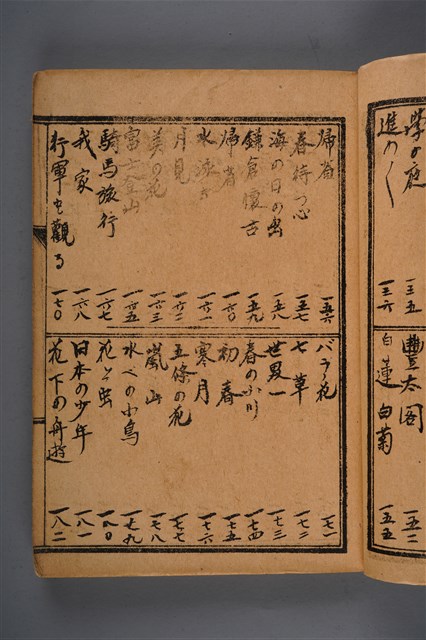 の庭 一三五
進め〱 一三六
豊太閤 一五二
白蓮 白菊 一五五
帰省 一五六
春待つ心 一五七
海の日の出 一五八
鎌倉懐古 一五九
帰省 一六〇
水泳 一六一
月見 一六二
美の花 一六三
富士登山 一六五
騎馬旅行 一六七
我家 一六八
行軍を觀る 一七〇
バラ花 一七一
七草 一七二
世界一 一七三
春の小川 一七四
初春 一七五
寒月 一七六
五條の花 一七七
嵐山 一七八
水べの小鳥 一七九
花と虫 一八〇
日本の少年 一八一
花下の舟遊 一八二